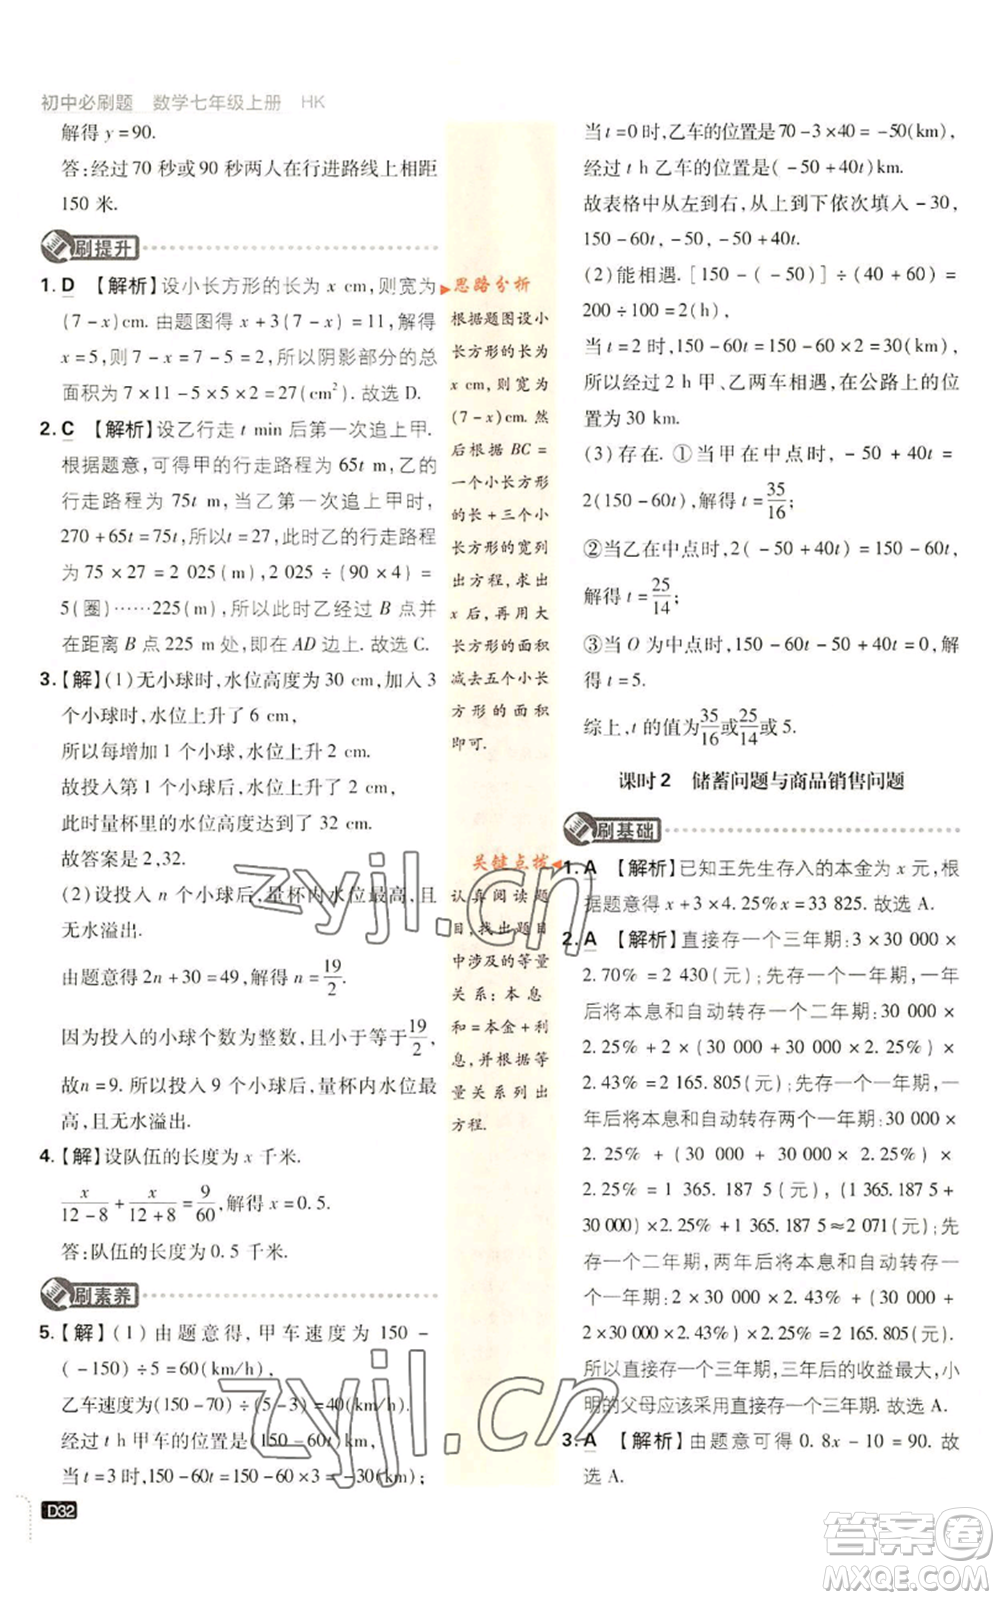 初中必刷题 数学七年级上册 HK
解得 y = 90.
答:经过 70 秒或 90 秒两人在行进路线上相距
150 米.
刷提升
1. D 【解析】设小长方形的长为 x cm,则宽为
(7 - x)cm. 由题图得 x + 3(7 - x) = 11,解得
x = 5,则 7 - x = 7 - 5 = 2,所以阴影部分的总
面积为 7 × 11 - 5 × 5 × 2 = 27(cm²). 故选 D.
2. C 【解析】设乙行走 t min 后第一次追上甲.
根据题意,可得甲的行走路程为 65t m,乙的
行走路程为 75t m,当乙第一次追上甲时,
270 + 65t = 75t,所以 t = 27,此时乙的行走路程
为 75 × 27 = 2 025(m),2 025 ÷ (90 × 4) =
5(圈)……225(m),所以此时乙经过 B 点并
在距离 B 点 225 m 处,即在 AD 边上. 故选 C.
3.【解】(1)无小球时,水位高度为 30 cm,加入 3
个小球时,水位上升了 6 cm,
所以每增加 1 个小球,水位上升 2 cm.
故投入第 1 个小球后,水位上升了 2 cm,
此时量杯里的水位高度达到了 32 cm.
故答案是 2,32.
(2)设投入 n 个小球后,量杯内水位最高,且
无水溢出.
由题意得 2n + 30 = 49,解得 n = 19/2.
因为投入的小球个数为整数,且小于等于 19/2,
故 n = 9. 所以投入 9 个小球后,量杯内水位最
高,且无水溢出.
4.【解】设队伍的长度为 x 千米.
x/(12 - 8) + x/(12 + 8) = 9/60,解得 x = 0. 5.
答:队伍的长度为 0. 5 千米.
刷素养
5.【解】(1)由题意得,甲车速度为 150 -
(-150) ÷ 5 = 60(km/h)
乙车速度为(150 - 70) ÷ (5 - 3) = 40(km/h).
经过 t h 甲车的位置是(150 - 60t)km,
当 t = 3 时,150 - 60t = 150 - 60 × 3 = -30(km);
D32
思路分析
根据题图设小
长方形的长为
x cm,则宽为
(7 - x)cm. 然
后根据 BC =
一个小长方形
的长 + 三个小
长方形的宽列
出方程,求出
x 后,再用大
长方形的面积
减去五个小长
方形的面积
即可.
关键点拨
认真阅读题
目,找出题目
中涉及的等量
关系:本息
和 = 本金 + 利
息,并根据等
量关系列出
方程.
当 t = 0 时,乙车的位置是 70 - 3 × 40 = -50(km),
经过 t h 乙车的位置是(-50 + 40t)km.
故表格中从左到右,从上到下依次填入 -30,
150 - 60t, -50, -50 + 40t.
(2)能相遇. [150 - (-50)] ÷ (40 + 60) =
200 ÷ 100 = 2(h),
当 t = 2 时,150 - 60t = 150 - 60 × 2 = 30(km),
所以经过 2 h 甲、乙两车相遇,在公路上的位
置为 30 km.
(3)存在. ①当甲在中点时, -50 + 40t =
2(150 - 60t),解得 t = 35/16;
②当乙在中点时,2(-50 + 40t) = 150 - 60t,
解得 t = 25/14;
③当 O 为中点时,150 - 60t - 50 + 40t = 0,解
得 t = 5.
综上,t 的值为 35/16 或 25/14 或 5.
课时 2 储蓄问题与商品销售问题
刷基础
1. A 【解析】已知王先生存入的本金为 x 元,根
据题意得 x + 3 × 4. 25%x = 33 825. 故选 A.
2. A 【解析】直接存一个三年期:3 × 30 000 ×
2. 70% = 2 430(元);先存一个一年期,一年后
将本息和自动转存一个二年期:30 000 ×
2. 25% + 2 × (30 000 + 30 000 × 2. 25%) ×
2. 43% = 2 165. 805(元);先存一个一年期,一
年后将本息和自动转存两个一年期:30 000 ×
2. 25% + (30 000 + 30 000 × 2. 25%) ×
2. 25% = 1 365. 187 5(元),(1 365. 187 5 +
30 000) × 2. 25% + 1 365. 187 5 ≈ 2 071(元);先
存一个二年期,两年后将本息和自动转存
一个一年期:2 × 30 000 × 2. 43% + (30 000 +
2 × 30 000 × 2. 43%) × 2. 25% = 2 165. 805(元).
所以直接存一个三年期,三年后的收益最大,小
明的父母应该采用直接存一个三年期. 故选 A.
3. A 【解析】由题意可得 0. 8x - 10 = 90. 故
选 A.
zyjl.cn
zyjl.cn
答案圈
MXQE.COM